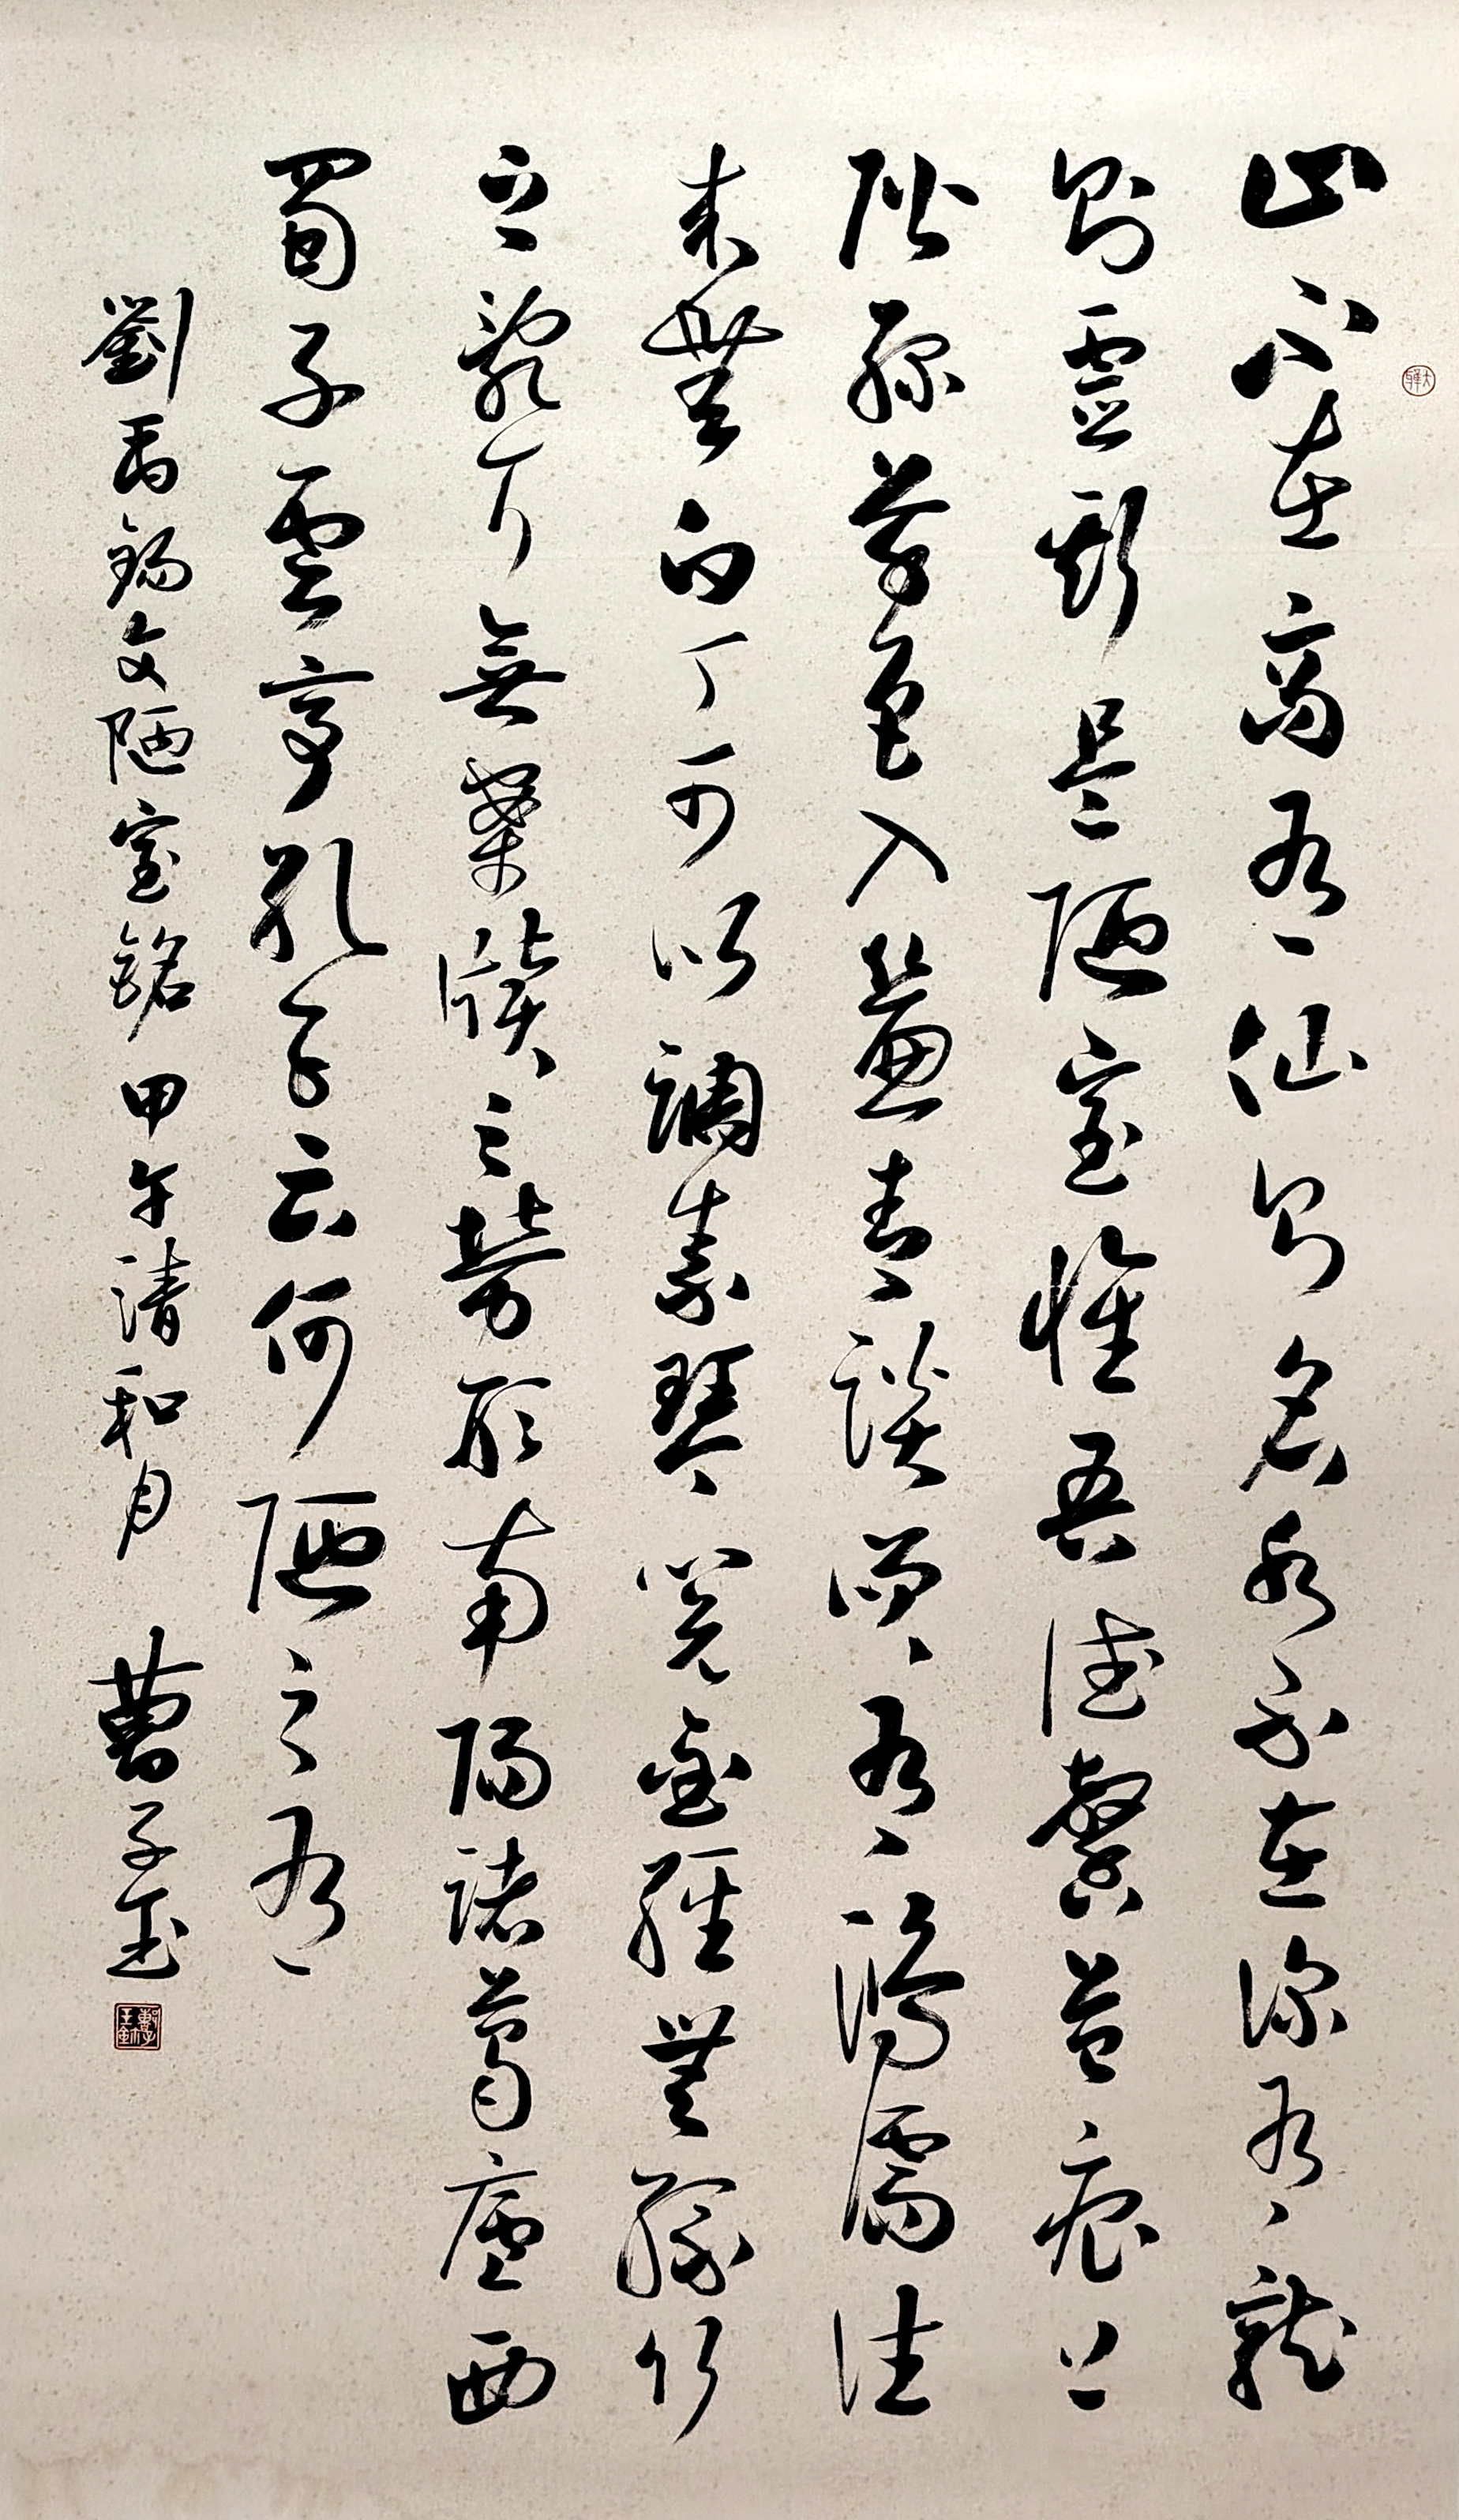 山不在高有仙則名水不在深有龍
則靈斯是陋室惟吾德馨苔痕上
階綠草色入簾青談笑有鴻儒往
來無白丁可以調素琴閱金經無絲竹
之亂耳無案牘之勞形南陽諸葛廬西
蜀子雲亭孔子云何陋之有
劉禹錫文陋室銘甲午清和月 曹子玉